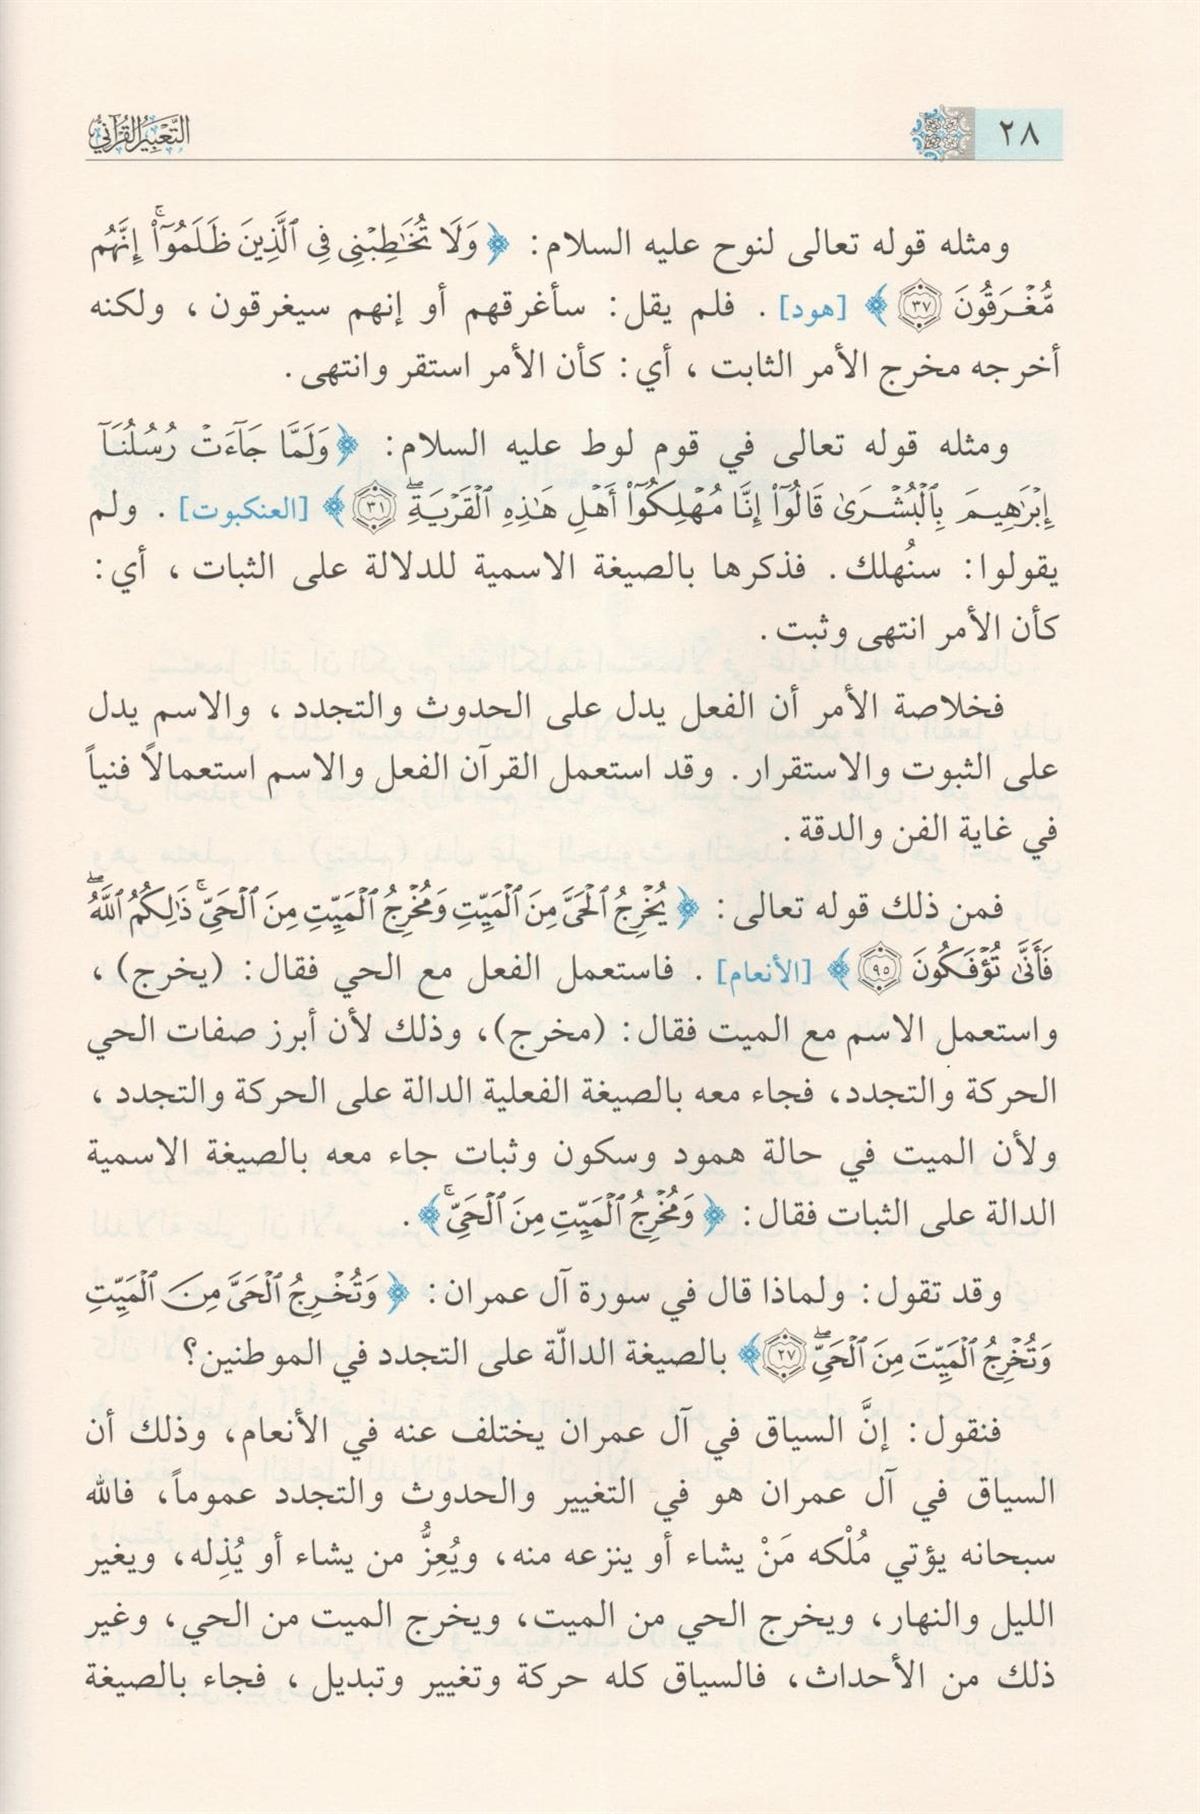 ٢٨
التعبير القرآني
ومثله قوله تعالى لنوح عليه السلام: ﴿وَلَا تُخَٰطِبۡنِي فِي ٱلَّذِينَ ظَلَمُوٓاْۚ إِنَّهُم
مُّغۡرَقُونَ ٣٧﴾ [هود]. فلم يقل: سأغرقهم أو إنهم سيغرقون، ولكنه
أخرجه مخرج الأمر الثابت، أي: كأن الأمر استقر وانتهى.
ومثله قوله تعالى في قوم لوط عليه السلام: ﴿وَلَمَّا جَآءَتۡ رُسُلُنَآ
إِبۡرَٰهِيمَ بِٱلۡبُشۡرَىٰ قَالُوٓاْ إِنَّا مُهۡلِكُوٓاْ أَهۡلِ هَٰذِهِ ٱلۡقَرۡيَةِۖ ٣١﴾ [العنكبوت]. ولم
يقولوا: سنُهلك. فذكرها بالصيغة الاسمية للدلالة على الثبات، أي:
كأن الأمر انتهى وثبت.
فخلاصة الأمر أن الفعل يدل على الحدوث والتجدد، والاسم يدل
على الثبوت والاستقرار. وقد استعمل القرآن الفعل والاسم استعمالاً فنياً
في غاية الفن والدقة.
فمن ذلك قوله تعالى: ﴿يُخۡرِجُ ٱلۡحَيَّ مِنَ ٱلۡمَيِّتِ وَمُخۡرِجُ ٱلۡمَيِّتِ مِنَ ٱلۡحَيِّۚ ذَٰلِكُمُ ٱللَّهُۖ
فَأَنَّىٰ تُؤۡفَكُونَ ٩٥﴾ [الأنعام]. فاستعمل الفعل مع الحي فقال: (يخرج)،
واستعمل الاسم مع الميت فقال: (مخرج)، وذلك لأن أبرز صفات الحي
الحركة والتجدد، فجاء معه بالصيغة الفعلية الدالة على الحركة والتجدد،
ولأن الميت في حالة همود وسكون وثبات جاء معه بالصيغة الاسمية
الدالة على الثبات فقال: ﴿وَمُخۡرِجُ ٱلۡمَيِّتِ مِنَ ٱلۡحَيِّۚ﴾.
وقد تقول: ولماذا قال في سورة آل عمران: ﴿وَتُخۡرِجُ ٱلۡحَيَّ مِنَ ٱلۡمَيِّتِ
وَتُخۡرِجُ ٱلۡمَيِّتَ مِنَ ٱلۡحَيِّۖ ٢٧﴾ بالصيغة الدالّة على التجدد في الموطنين؟
فنقول: إنَّ السياق في آل عمران يختلف عنه في الأنعام، وذلك أن
السياق في آل عمران هو في التغيير والحدوث والتجدد عموماً، فالله
سبحانه يؤتي مُلْكه مَنْ يشاء أو ينزعه منه، ويُعِزُّ من يشاء أو يُذِله، ويغير
الليل والنهار، ويخرج الحي من الميت، ويخرج الميت من الحي، وغير
ذلك من الأحداث، فالسياق كله حركة وتغيير وتبديل، فجاء بالصيغة